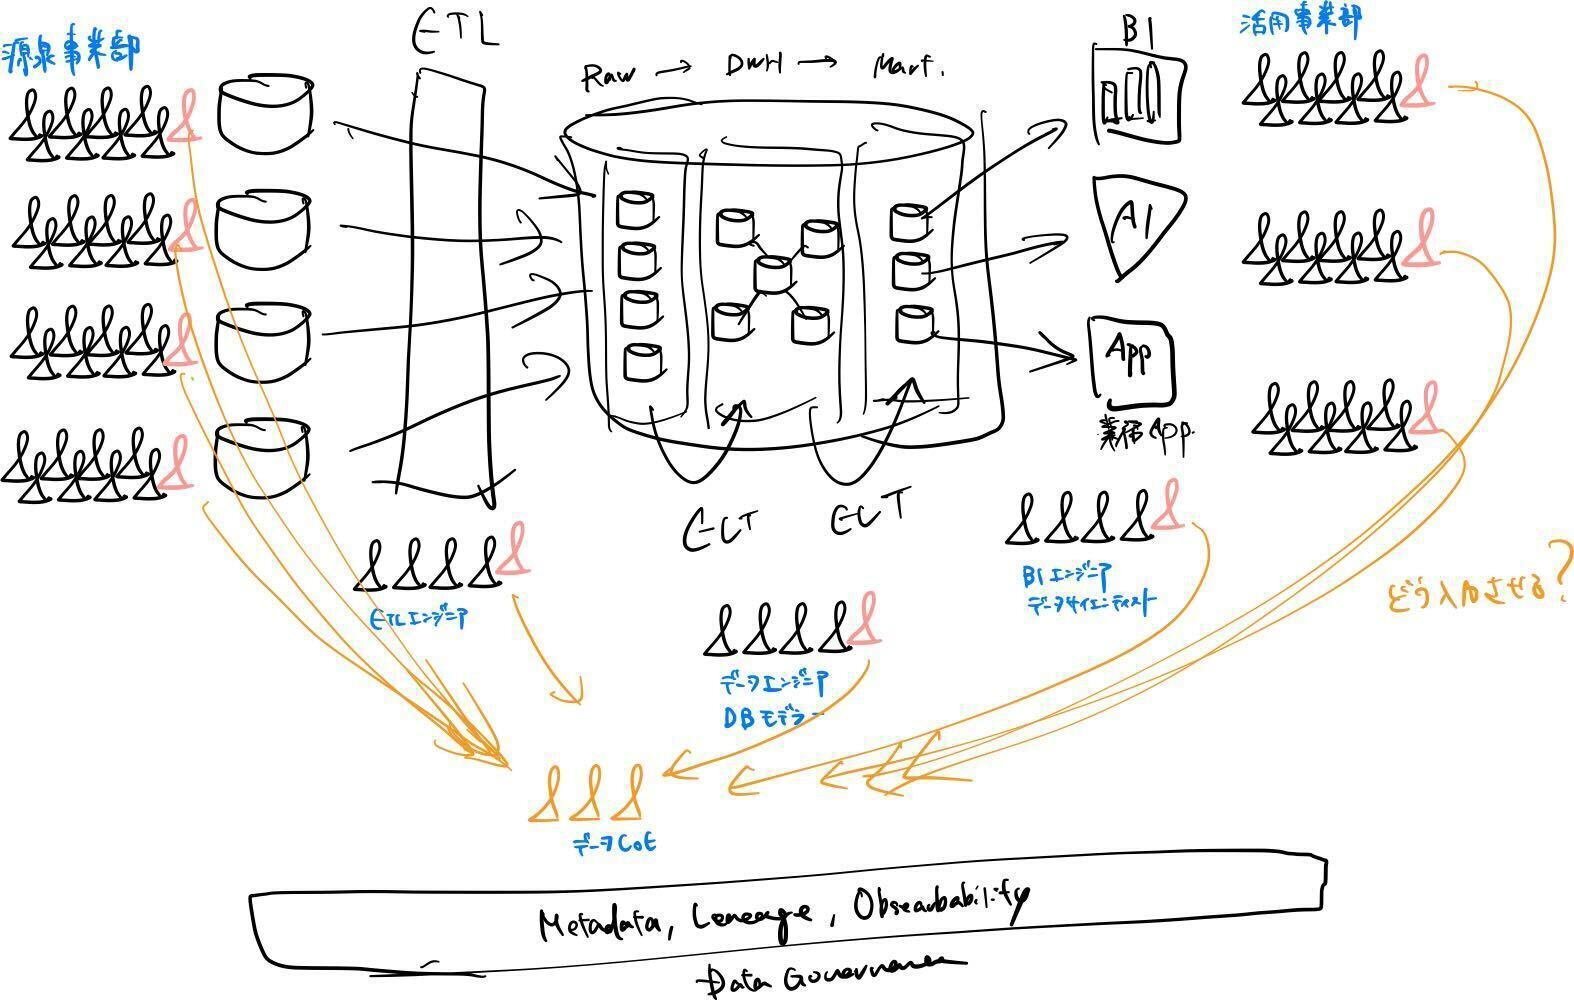 源泉事業部
ETL
Raw → DWH → Mart.
BI
活用事業部
AI
App
業務App.
ELT
ELT
ETLエンジニア
BIエンジニア
データサイエンティスト
どう入力させる?
データエンジニア
DBモデラー
データCoE
Metadata, Leneage, Obsearbability
Data Governance